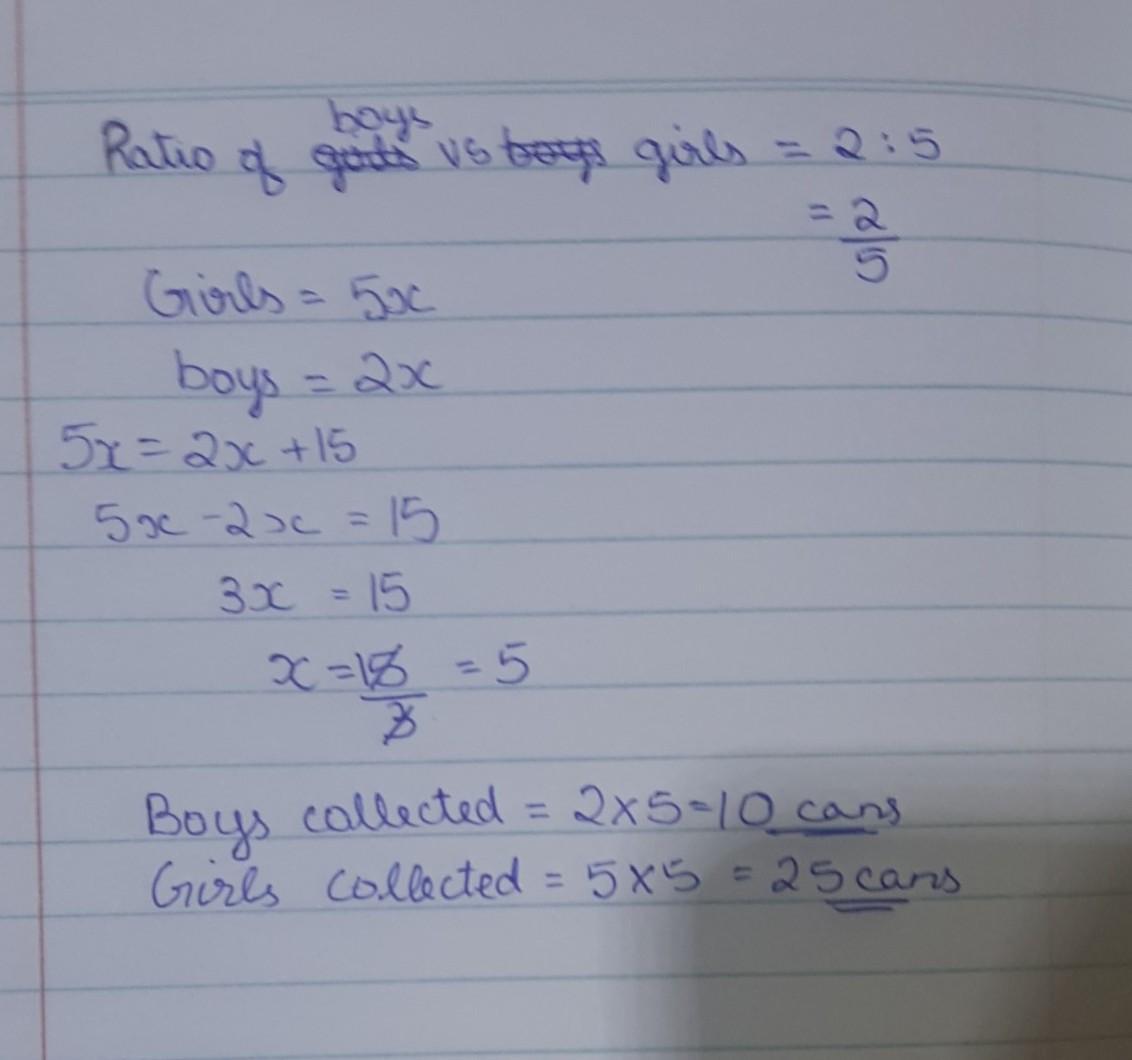 Ratio of boys vs girls = 2:5
= 2/5
Girls = 5x
boys = 2x
5x = 2x + 15
5x - 2x = 15
3x = 15
x = 15/3 = 5
Boys collected = 2x5=10 cans
Girls collected = 5x5 = 25 cans